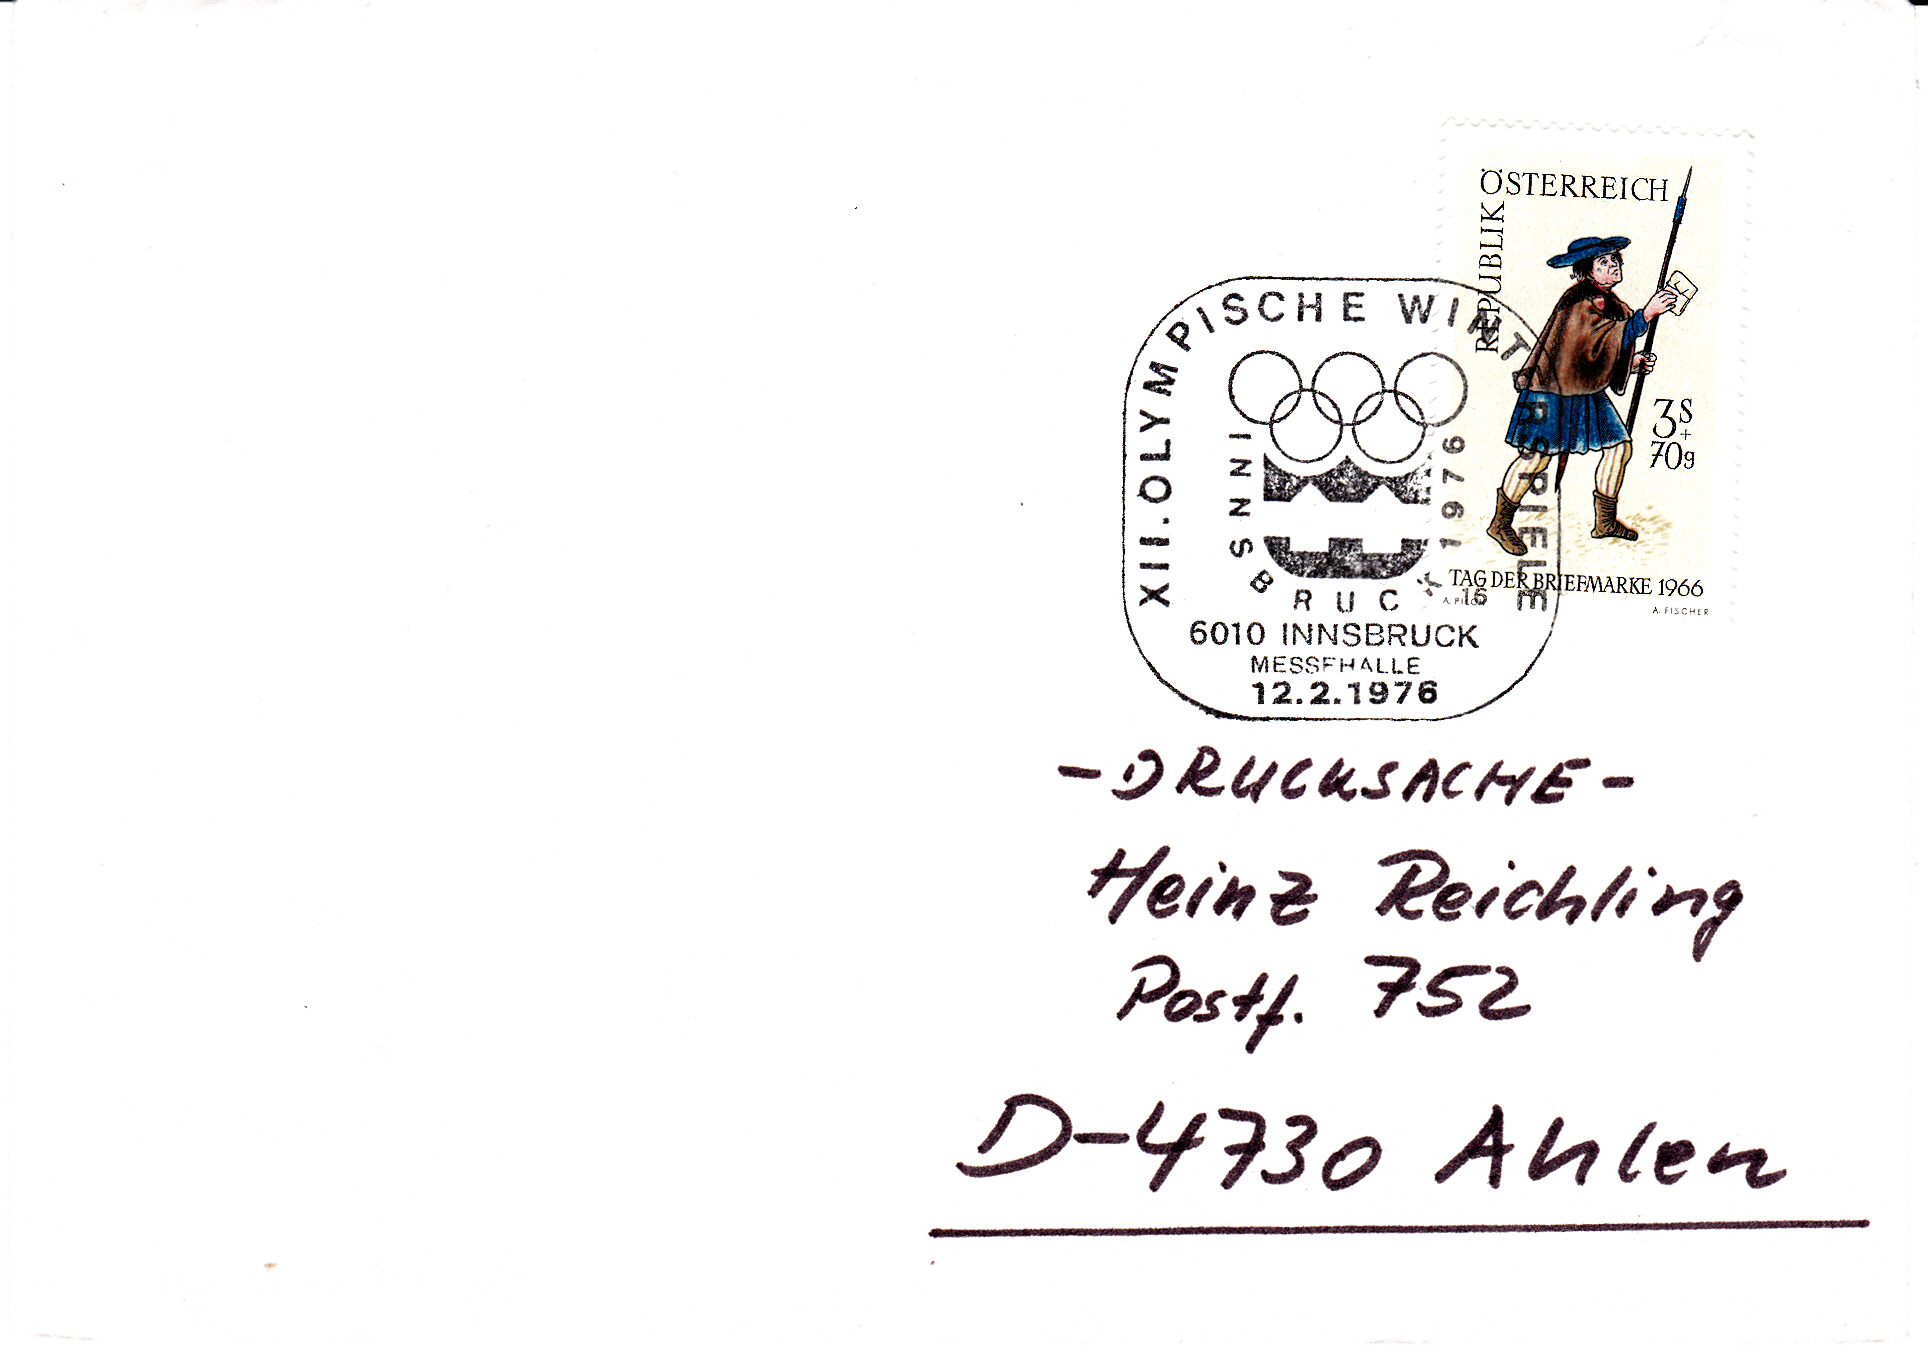 REPUBLIK ÖSTERREICH
3S
+
70g
TAG DER BRIEFMARKE 1966
A. FISCHER
XII. OLYMPISCHE WINTERSPIELE
INNSBRUCK 1976
16
6010 INNSBRUCK
MESSEHALLE
12.2.1976
- DRUCKSACHE -
Heinz Reichling
Postf. 752
D-4730 Ahlen